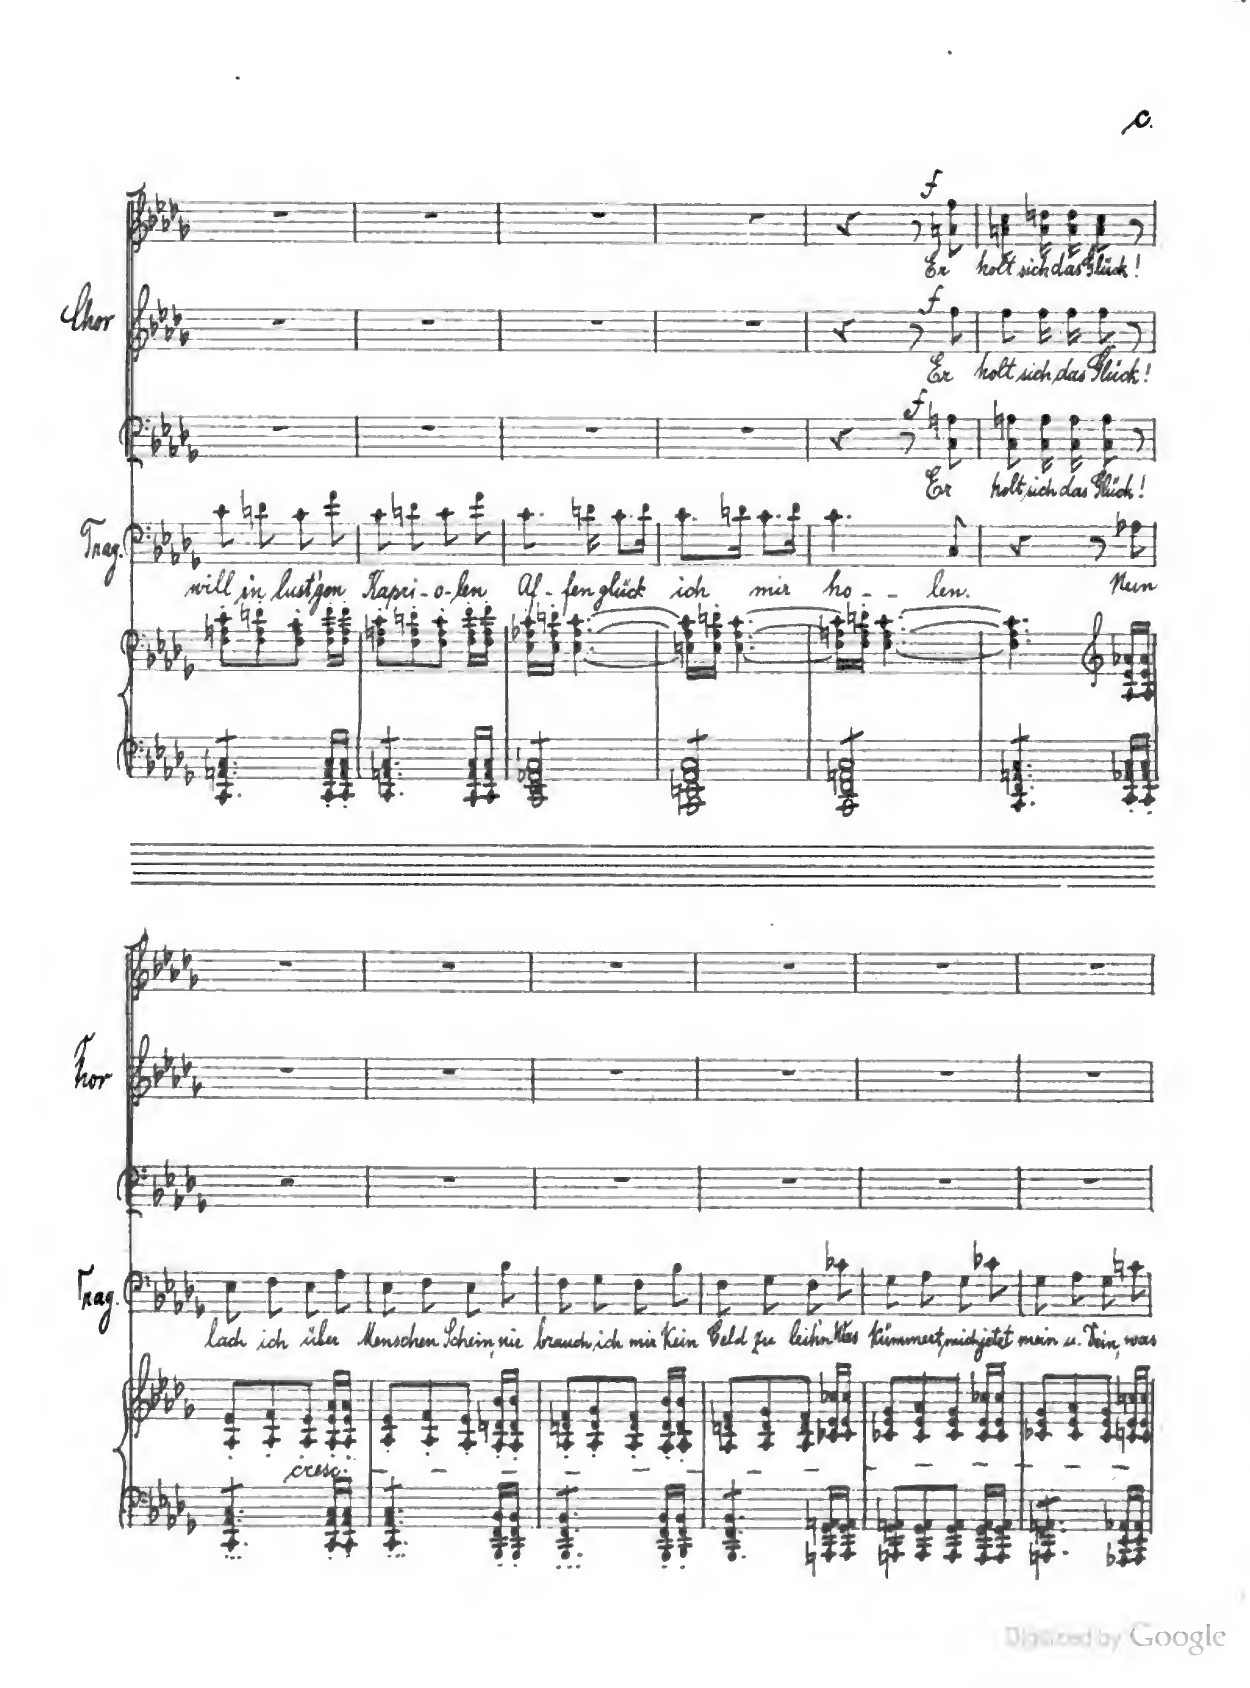 c.
f
Er holt sich das Glück!
Chor
f
Er holt sich das Glück!
f
Er holt sich das Glück!
Trag.
will in lust'gen Kapri-o-len Af-fenglück ich mir ho--len. Nun
Chor
Trag.
lach ich über Menschen Schein, nie brauch ich mir Kein Geld zu leih'n Was kümmert mich jetzt mein u. Dein, was
cresc.
Digitized by Google